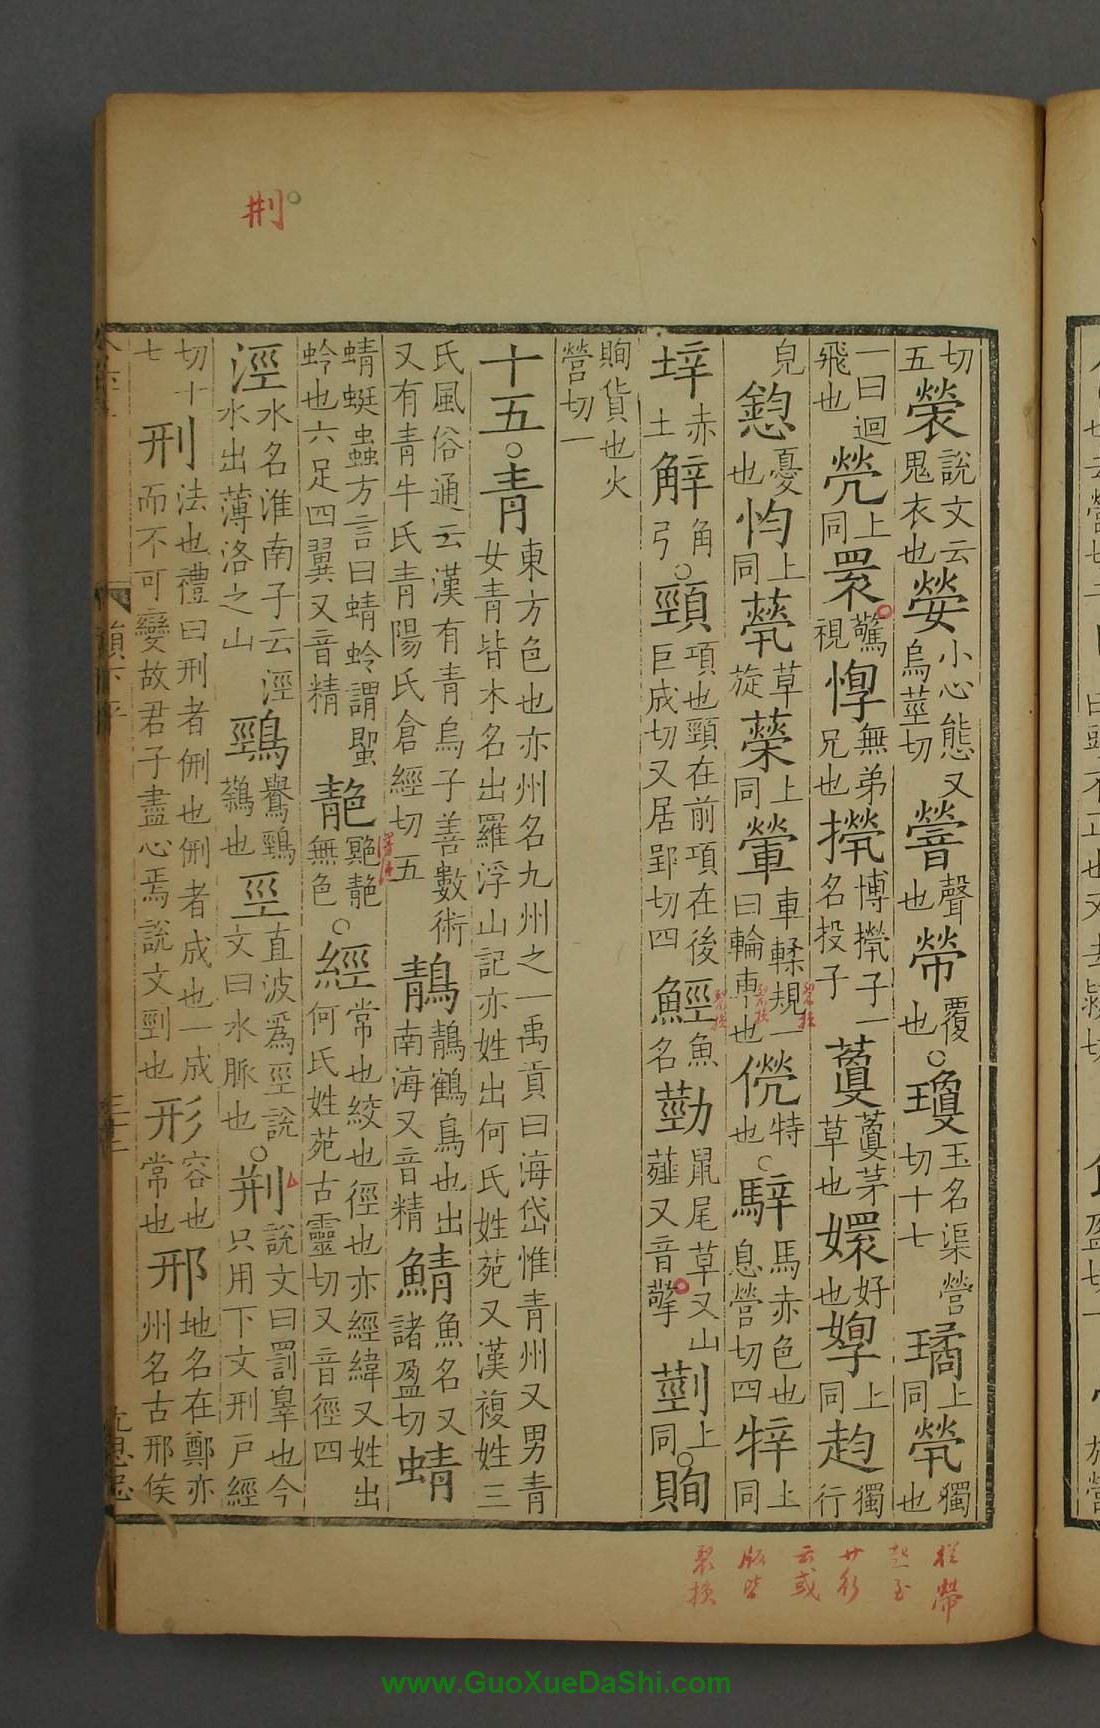 荆
切五褮說文云鬼衣也嫈小心態又烏莖切謍聲也㡞覆也○瓊玉名渠營切十七璚上同煢獨也
一曰迴飛也㷀上同睘驚視惸無弟兄也㨕博㨕子一名投子藑藑茅草也嬛好也㛙上同赹獨行
皃憌憂也㤚上同藭草旋蒆上同䡝車輮規一曰輪車也㒯特也○騂馬赤色也息營切四牸上同
垶赤土觲角弓○頸項也頸在前項在後巨成切又居郢切四鯁魚名葝鼠尾草又山薤又音擎䓳上同○眴
眴貨也火營切一
十五○青東方色也亦州名九州之一禹貢曰海岱惟青州又男青女青皆木名出羅浮山記亦姓出何氏姓苑又漢複姓三
氏風俗通云漢有青烏子善數術又有青牛氏青陽氏倉經切五鶄鶄鶴鳥也出南海又音精鯖魚名又諸盈切蜻
蜻蜓蟲方言曰蜻蛉謂蝍蛉也六足四翼又音精靘䵳靘無色○經常也絞也徑也亦經緯又姓出何氏姓苑古靈切又音徑四
涇水名淮南子云涇水出薄洛之山鵛鸒鵛鶨也巠直波爲巠說文曰水脈也○荆說文曰罰辠也今只用下文刑戶經
切十七刑法也禮曰刑者侀也侀者成也一成而不可變故君子盡心焉說文剄也形容也常也邢地名在鄭亦州名古邢侯
起至
廿行
云或
版皆
裂损
www.GuoXueDaShi.com